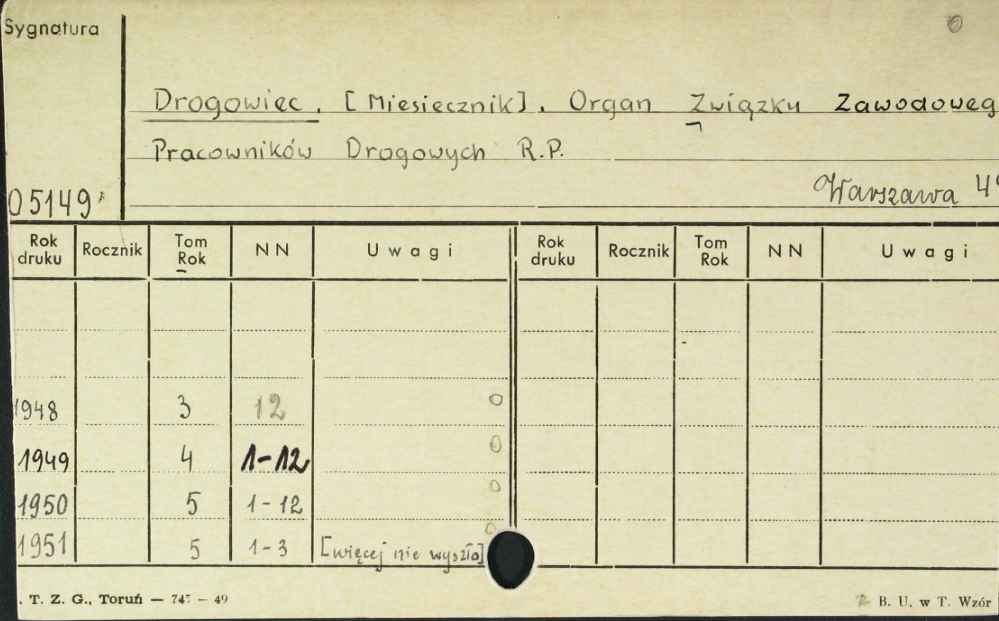 Sygnatura
Drogowiec. [Miesięcznik]. Organ Związku Zawodoweg
Pracowników Drogowych R.P.
Warszawa 49
05149
Rok druku Rocznik Tom Rok NN Uwagi Rok druku Rocznik Tom Rok NN Uwagi
1948 3 12 0
1949 4 1-12 0
1950 5 1-12 0
1951 5 1-3 [więcej nie wyszło] 0
. T. Z. G., Toruń — 747 — 49
B. U. w T. Wzór